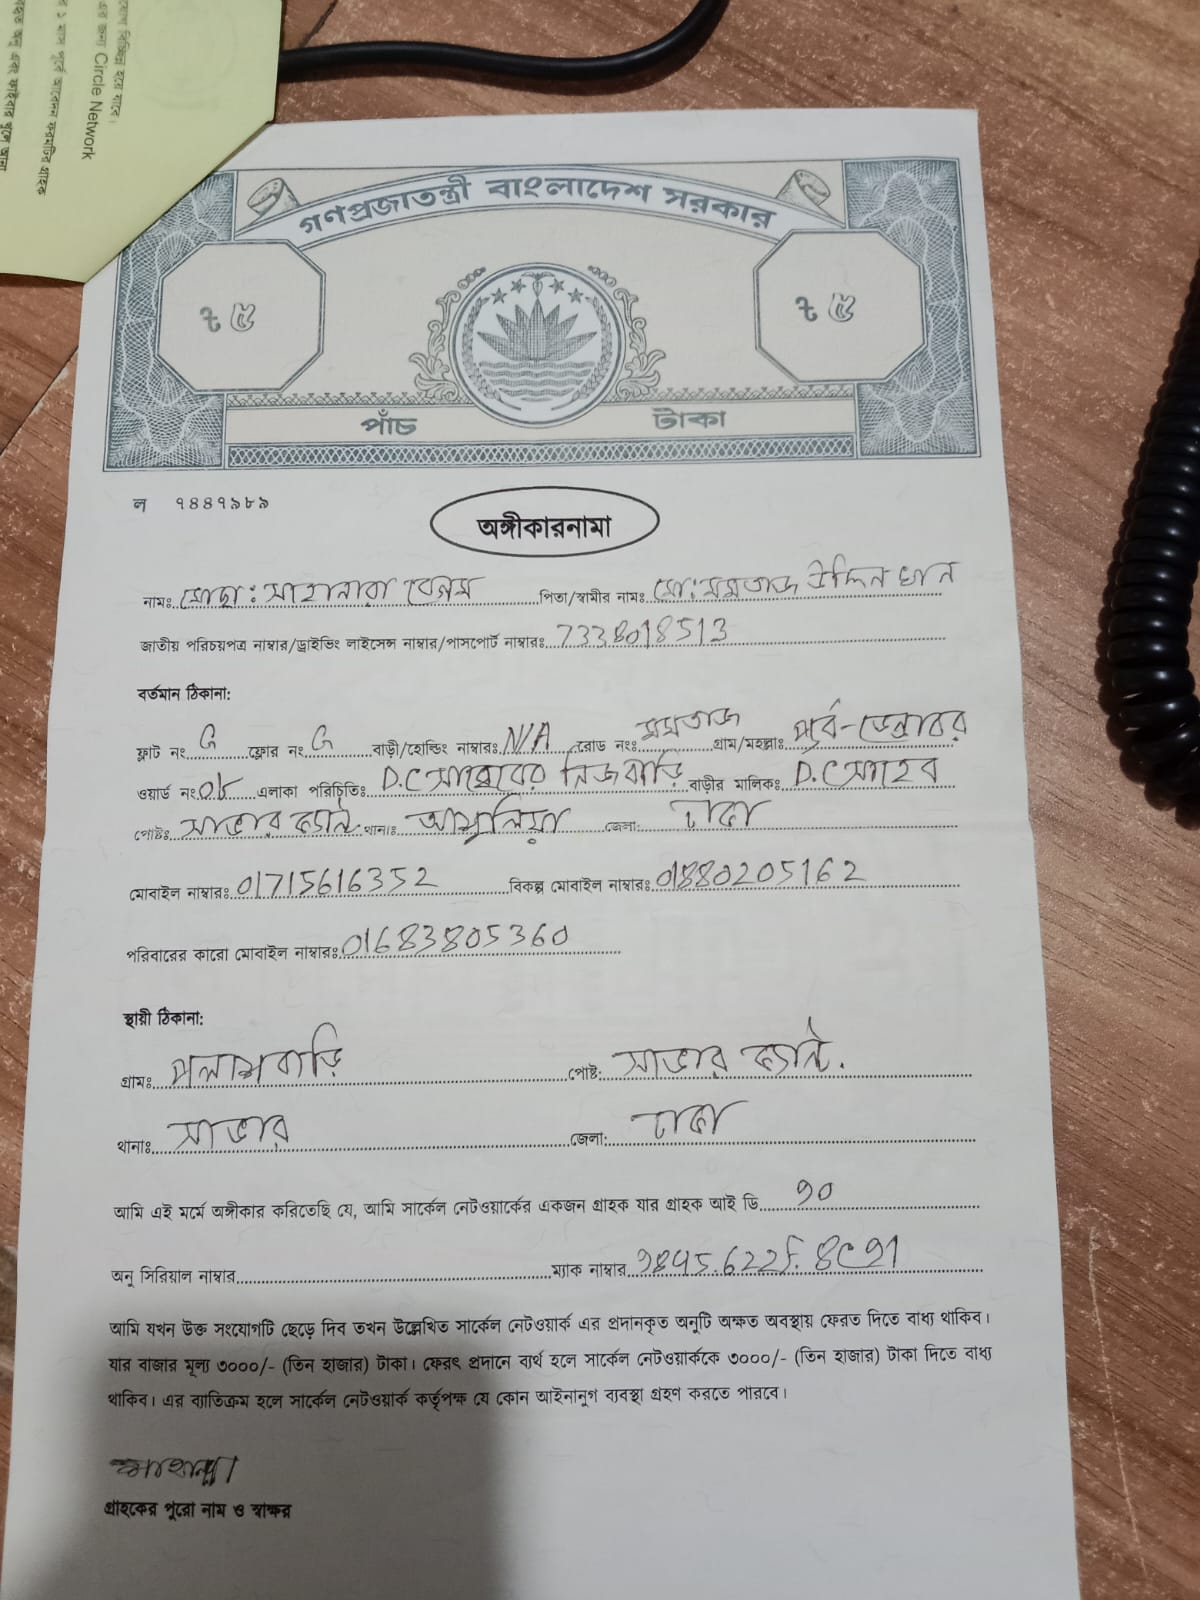 যোগ বিচ্ছিন্ন হয়ে যাবে।
এর জন্য Circle Network
১ মাস পূর্বে আবেদন ফরমটির গ্রাহক
অনু এবং ফাইবার খুলে আনা
গণপ্রজাতন্ত্রী বাংলাদেশ সরকার
৳ ৫ ৳ ৫
পাঁচ টাকা
ল ৭৪৪৭৯৮৯
অঙ্গীকারনামা
নামঃ মোছা: সাহানারা বেগম পিতা/স্বামীর নামঃ মো: মমতাজ উদ্দিন খান
জাতীয় পরিচয়পত্র নাম্বার/ড্রাইভিং লাইসেন্স নাম্বার/পাসপোর্ট নাম্বারঃ 7338018513
বর্তমান ঠিকানা:
ফ্লাট নং G ফ্লোর নং G বাড়ী/হোল্ডিং নাম্বারঃ N/A রোড নং: মমতাজ গ্রাম/মহল্লাঃ পূর্ব-ডেন্ডাবর
ওয়ার্ড নং ০৮ এলাকা পরিচিতিঃ D.C সাহেবের নিজবাড়ি বাড়ীর মালিকঃ D.C সাহেব
পোষ্টঃ সাভার ক্যান্ট. থানাঃ আশুলিয়া জেলা: ঢাকা
মোবাইল নাম্বারঃ 01715616352 বিকল্প মোবাইল নাম্বারঃ 01880205162
পরিবারের কারো মোবাইল নাম্বারঃ 01683805360
স্থায়ী ঠিকানা:
গ্রামঃ পলাশবাড়ি পোষ্ট: সাভার ক্যান্ট.
থানাঃ সাভার জেলা: ঢাকা
আমি এই মর্মে অঙ্গীকার করিতেছি যে, আমি সার্কেল নেটওয়ার্কের একজন গ্রাহক যার গ্রাহক আই ডি ৭০
অনু সিরিয়াল নাম্বার ম্যাক নাম্বার
আমি যখন উক্ত সংযোগটি ছেড়ে দিব তখন উল্লেখিত সার্কেল নেটওয়ার্ক এর প্রদানকৃত অনুটি অক্ষত অবস্থায় ফেরত দিতে বাধ্য থাকিব।
যার বাজার মূল্য ৩০০০/- (তিন হাজার) টাকা। ফেরৎ প্রদানে ব্যর্থ হলে সার্কেল নেটওয়ার্ককে ৩০০০/- (তিন হাজার) টাকা দিতে বাধ্য
থাকিব। এর ব্যতিক্রম হলে সার্কেল নেটওয়ার্ক কর্তৃপক্ষ যে কোন আইনানুগ ব্যবস্থা গ্রহণ করতে পারবে।
গ্রাহকের পুরো নাম ও স্বাক্ষর